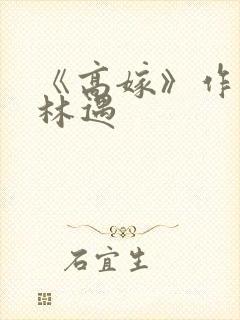 《高嫁》作
林遇
石宜生